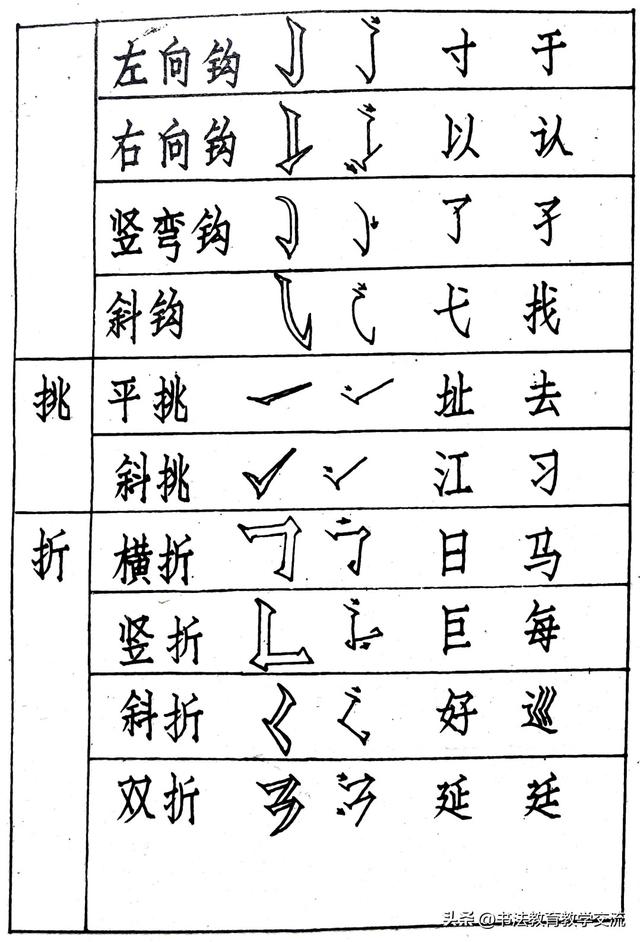 左向钩 寸 于
右向钩 以 认
竖弯钩 了 孑
斜钩 弋 找
挑 平挑 址 去
斜挑 江 习
折 横折 日 马
竖折 巨 每
斜折 好 巡
双折 延 廷
头条 @书法教育教学交流